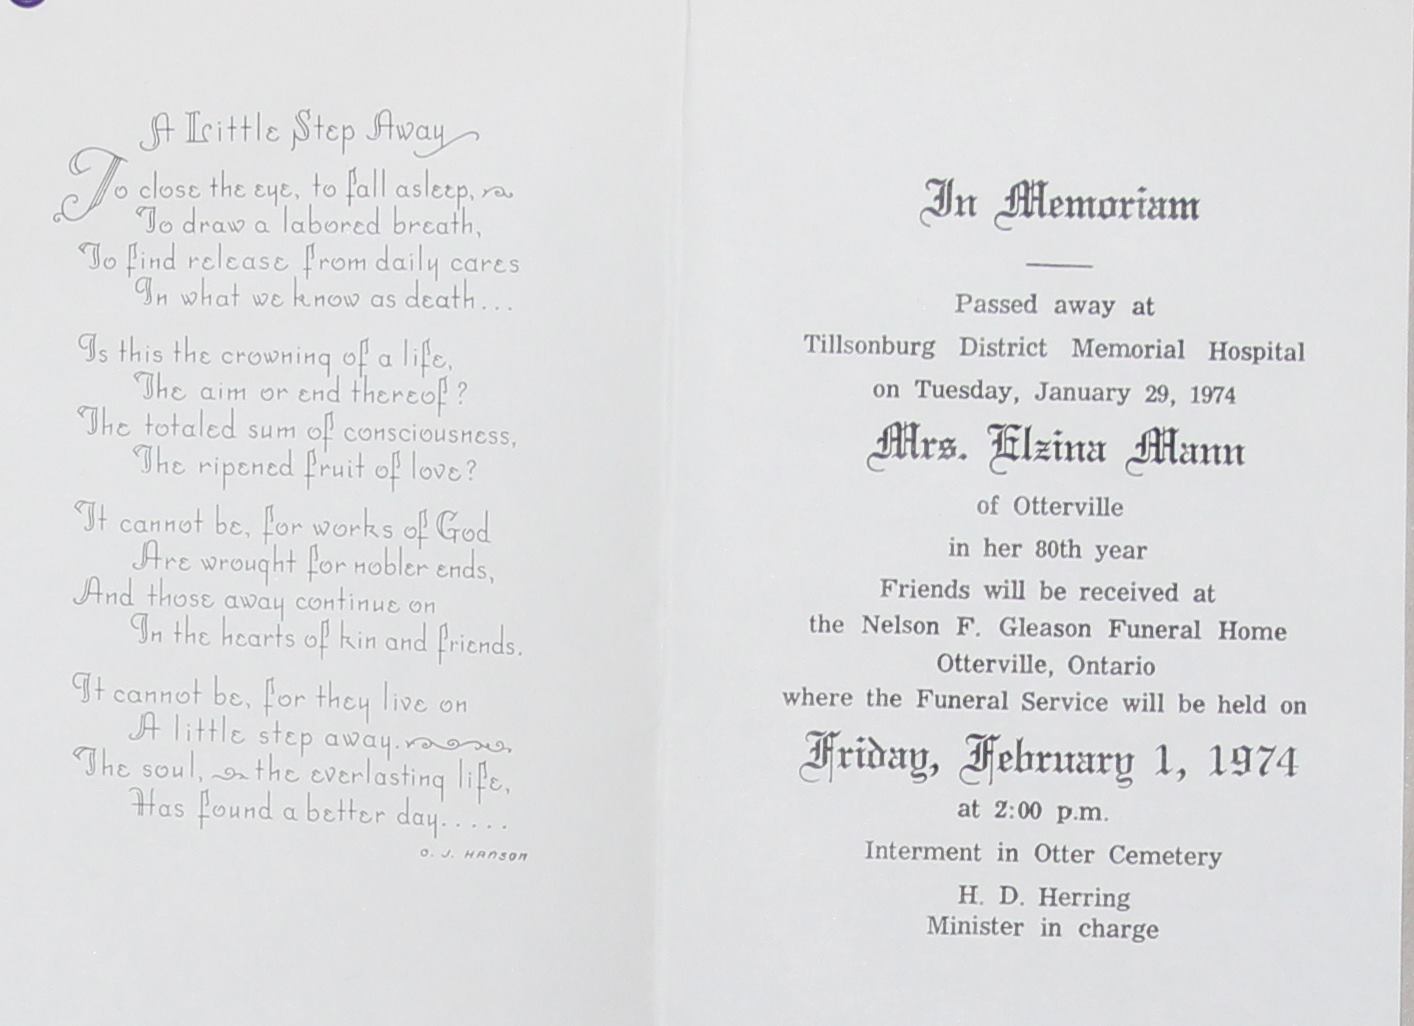 A Little Step Away
To close the eye, to fall asleep,
To draw a labored breath,
To find release from daily cares
In what we know as death...
Is this the crowning of a life,
The aim or end thereof?
The totaled sum of consciousness,
The ripened fruit of love?
It cannot be, for works of God
Are wrought for nobler ends,
And those away continue on
In the hearts of kin and friends.
It cannot be, for they live on
A little step away.
The soul, the everlasting life,
Has found a better day.....
O. J. HANSON
In Memoriam
Passed away at
Tillsonburg District Memorial Hospital
on Tuesday, January 29, 1974
Mrs. Elzina Mann
of Otterville
in her 80th year
Friends will be received at
the Nelson F. Gleason Funeral Home
Otterville, Ontario
where the Funeral Service will be held on
Friday, February 1, 1974
at 2:00 p.m.
Interment in Otter Cemetery
H. D. Herring
Minister in charge